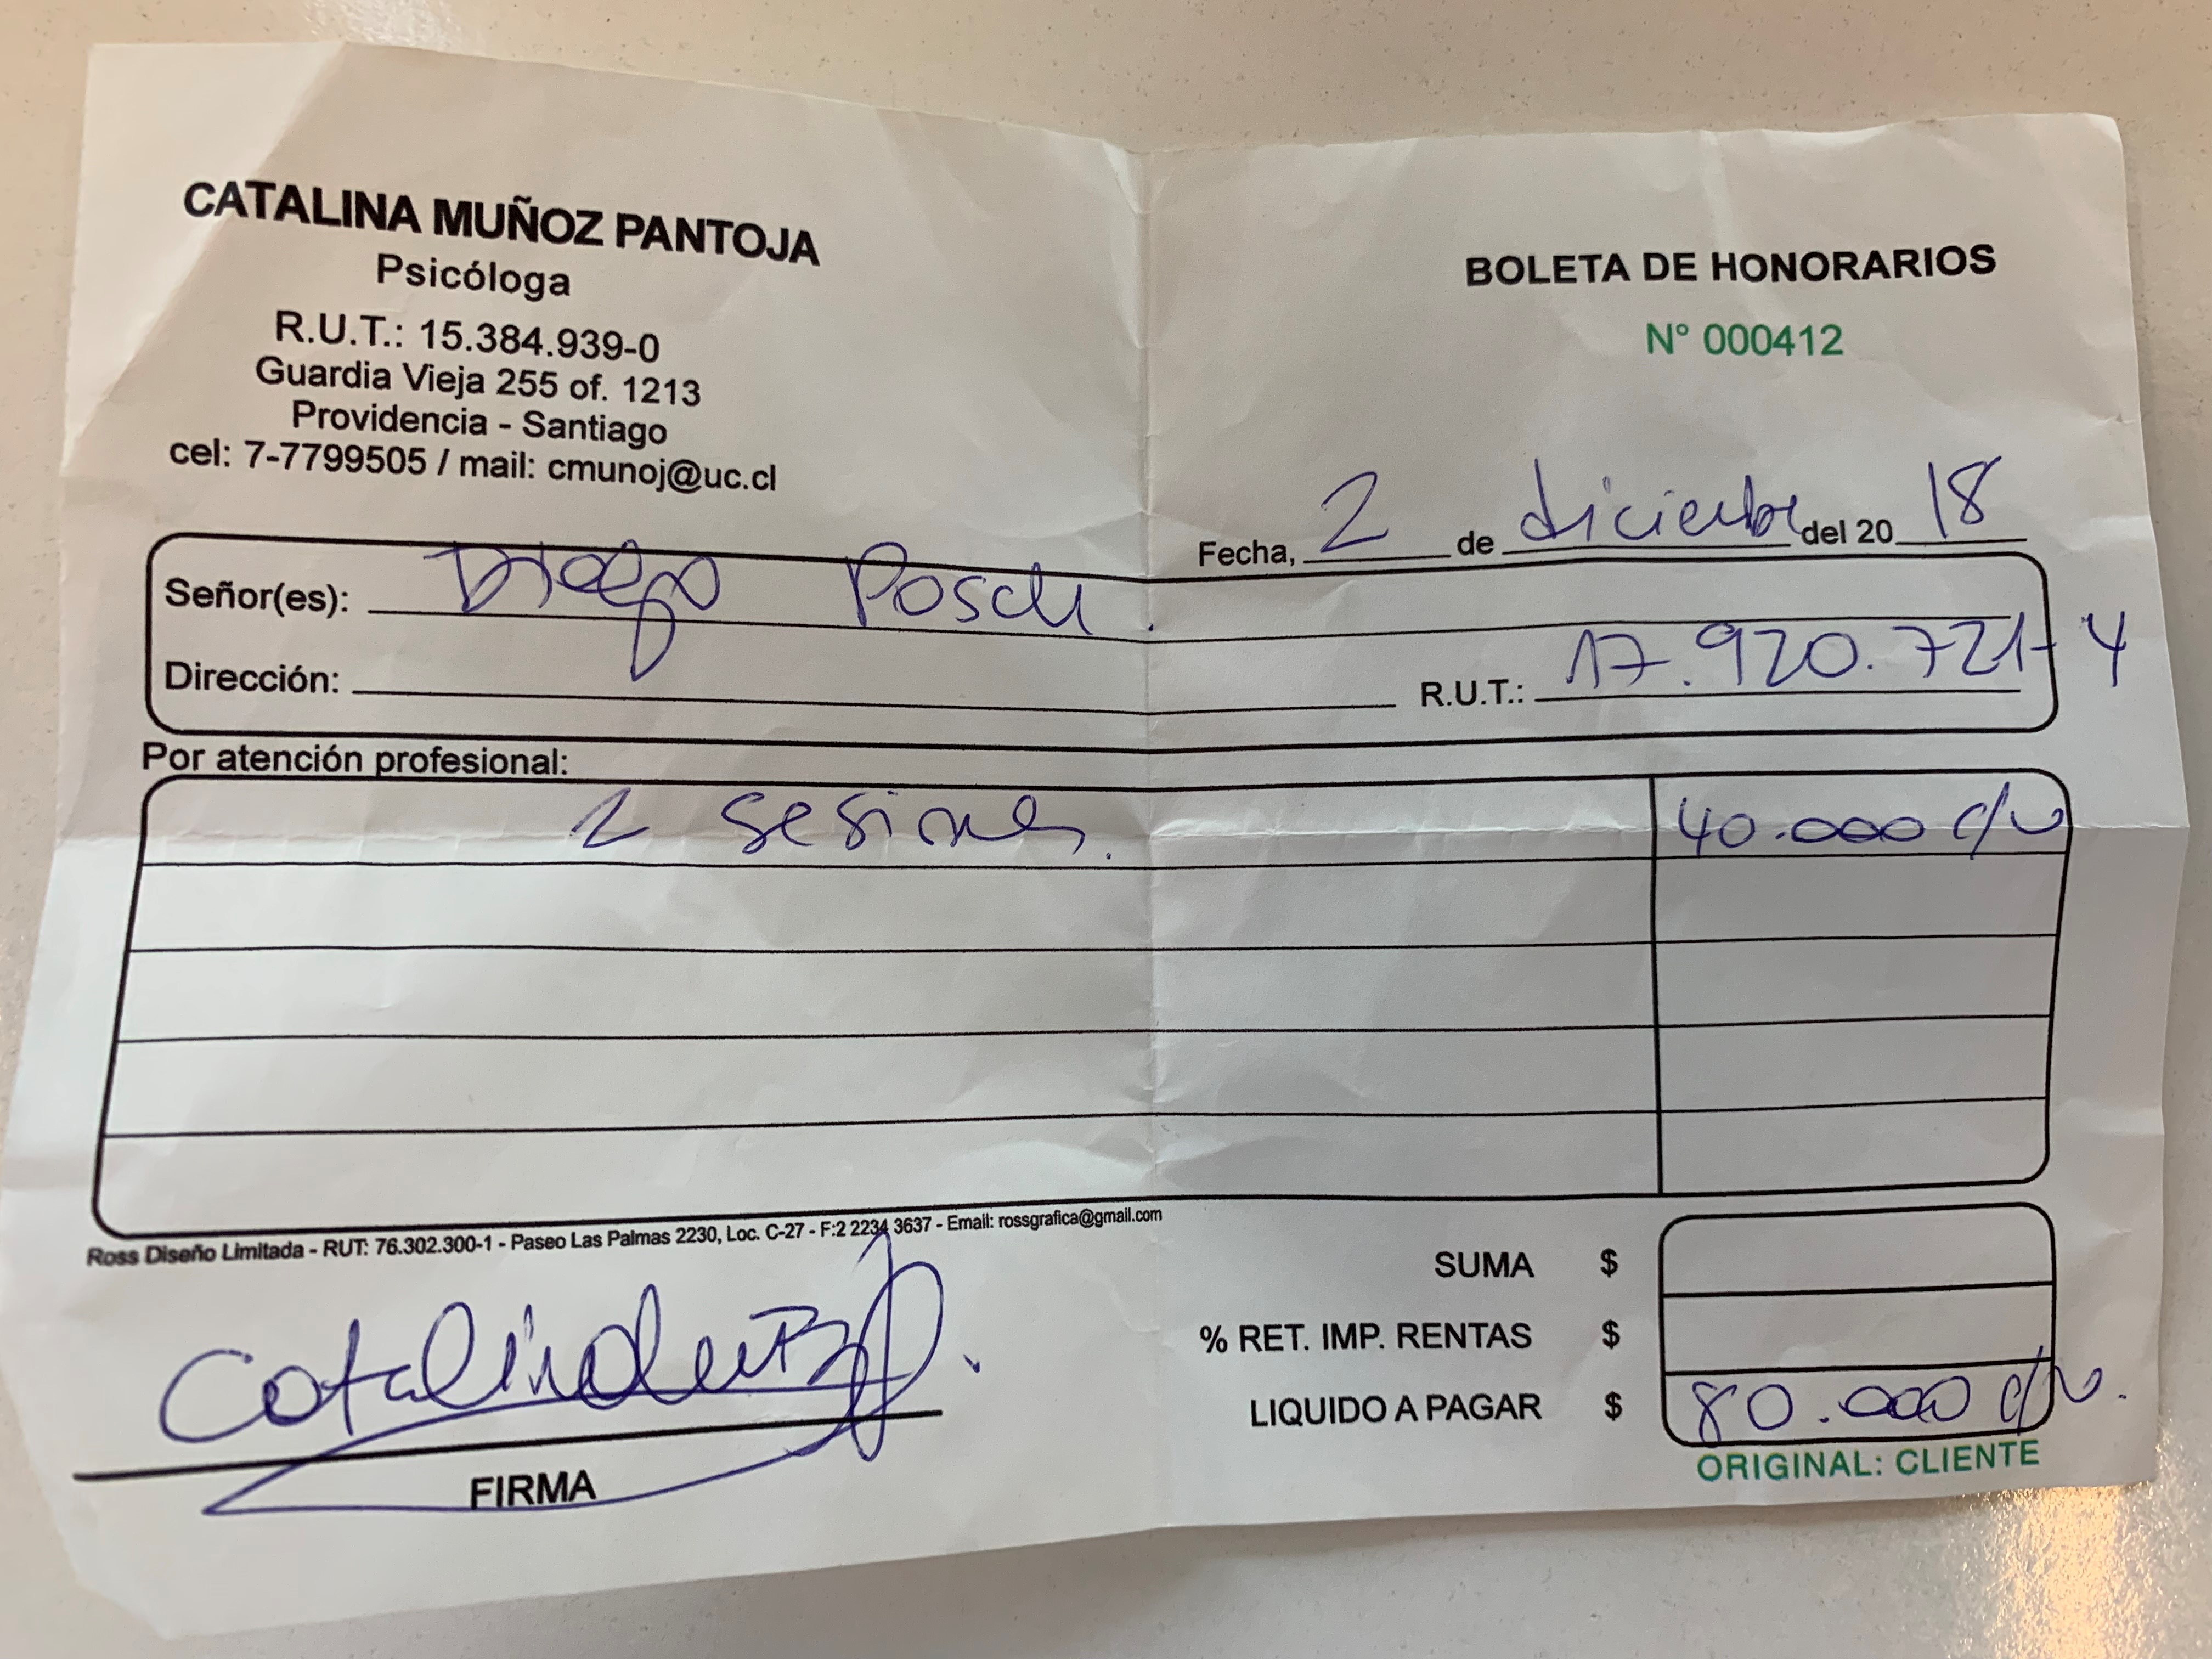 CATALINA MUÑOZ PANTOJA
Psicóloga
R.U.T.: 15.384.939-0
Guardia Vieja 255 of. 1213
Providencia - Santiago
cel: 7-7799505 / mail: cmunoj@uc.cl
BOLETA DE HONORARIOS
N° 000412
Fecha, 2 de diciembre del 20 18
Señor(es): Diego Posch.
Dirección: R.U.T.: 17.920.721-4
Por atención profesional:
2 sesiones. 40.000 c/u
Ross Diseño Limitada - RUT: 76.302.300-1 - Paseo Las Palmas 2230, Loc. C-27 - F:2 2234 3637 - Email: rossgrafica@gmail.com
SUMA $
% RET. IMP. RENTAS $
LIQUIDO A PAGAR $ 80.000 c/u.
ORIGINAL: CLIENTE
FIRMA